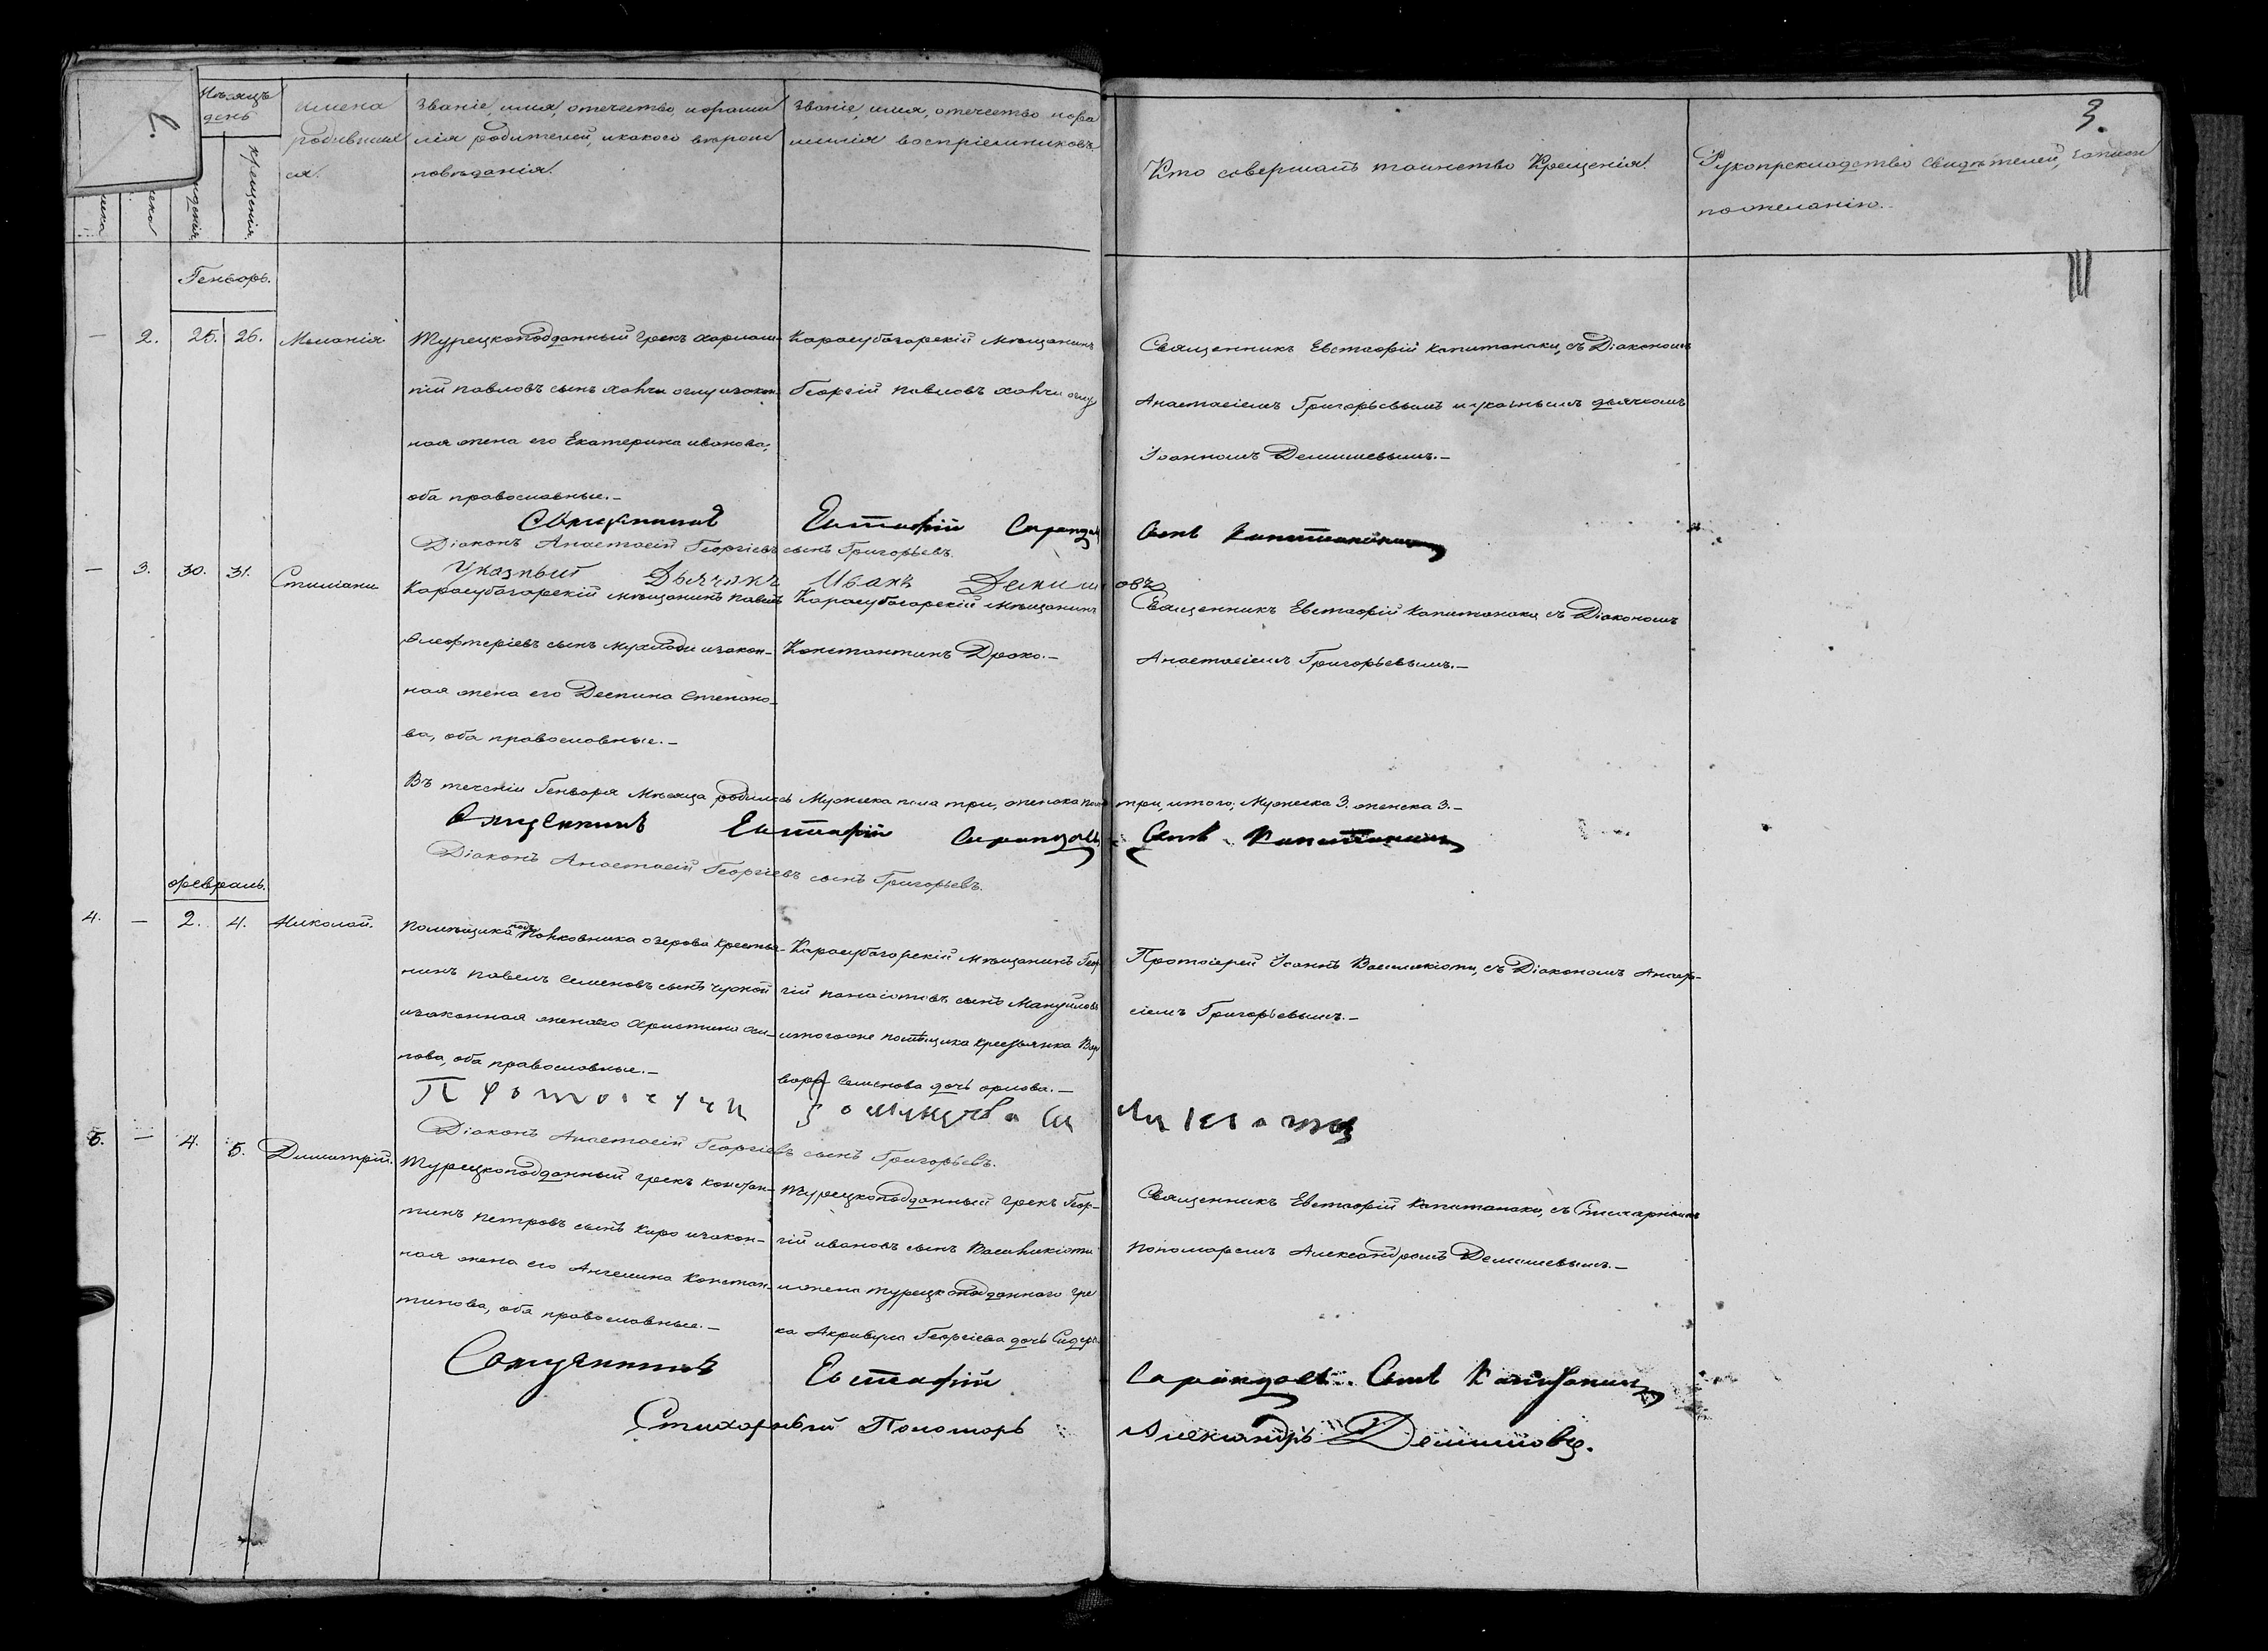 3.
2.
Мѣсяцъ день
крещенія.
Имена родившихся.
Званіе, имя, отчество, и фамилія родителей, и какого вѣроисповѣданія.
Званіе, имя, отчество и фамилія воспріемниковъ.
Кто совершалъ таинство Крещенія.
Рукоприкладство свидѣтелей, записи
по желанію.
Генварь.
— 2. 25. 26. Меланія
Турецкоподданный Грекъ Харлам-
пій Павловъ сынъ
ная жена его Екатерина Иванова,
оба православные.—
Карасубазарскій Мѣщанинъ
Георгій Павловъ
Священникъ Евстафій Капитанаки, съ Діакономъ
Анастасіемъ Григорьевымъ и указнымъ дьячкомъ
Іоанномъ Демишевымъ.—
Священникъ Евстафій
Діаконъ Анастасій Георгіевъ сынъ Григорьевъ.
Указный Дьячокъ Иванъ Демишовъ
— 3. 30. 31. Стиліани
Карасубазарскій мѣщанинъ Павелъ
Элефтеріевъ сынъ и закон-
ная жена его Деспина Степано-
ва, оба православные.—
Карасубазарскій Мѣщанинъ
Константинъ Драко.—
Священникъ Евстафій Капитанаки съ Діакономъ
Анастасіемъ Григорьевымъ.—
Въ теченіи Генваря Мѣсяца родилось Мужеска пола три, женска пола три, итого; Мужеска 3. женска 3.—
Священникъ Евстафій
Діаконъ Анастасій Георгіевъ сынъ Григорьевъ.
Февраль.
4. — 2. 4. Николай.
Помѣщика подполковника Озерова крестья-
нинъ Павелъ Семеновъ сынъ
и законная жена его Христина Оси-
пова, оба православные.—
Карасубазарскій Мѣщанинъ Геор-
гій сынъ Мануиловъ
и тогоже помѣщика крестьянка Вар-
вара Семенова дочь Орлова.—
Протоіерей Іоаннъ Василикіоти, съ Діакономъ Анаста-
сіемъ Григорьевымъ.—
Діаконъ Анастасій Георгіевъ сынъ Григорьевъ.
5. — 4. 5. Димитрій.
Турецкоподданный грекъ Констан-
тинъ Петровъ сынъ Киро и закон-
ная жена его Ангелина Констан-
тинова, оба православные.—
Турецкоподданный Грекъ Геор-
гій Ивановъ сынъ Василикіоти
и жена турецкоподданного Гре
ка Акривула Георгіева дочь
Священникъ Евстафій Капитанаки, съ Стихарнымъ
пономаремъ Александромъ Демишевымъ.—
Священникъ Евстафій
Стихарный Пономарь Александръ Демишовъ.